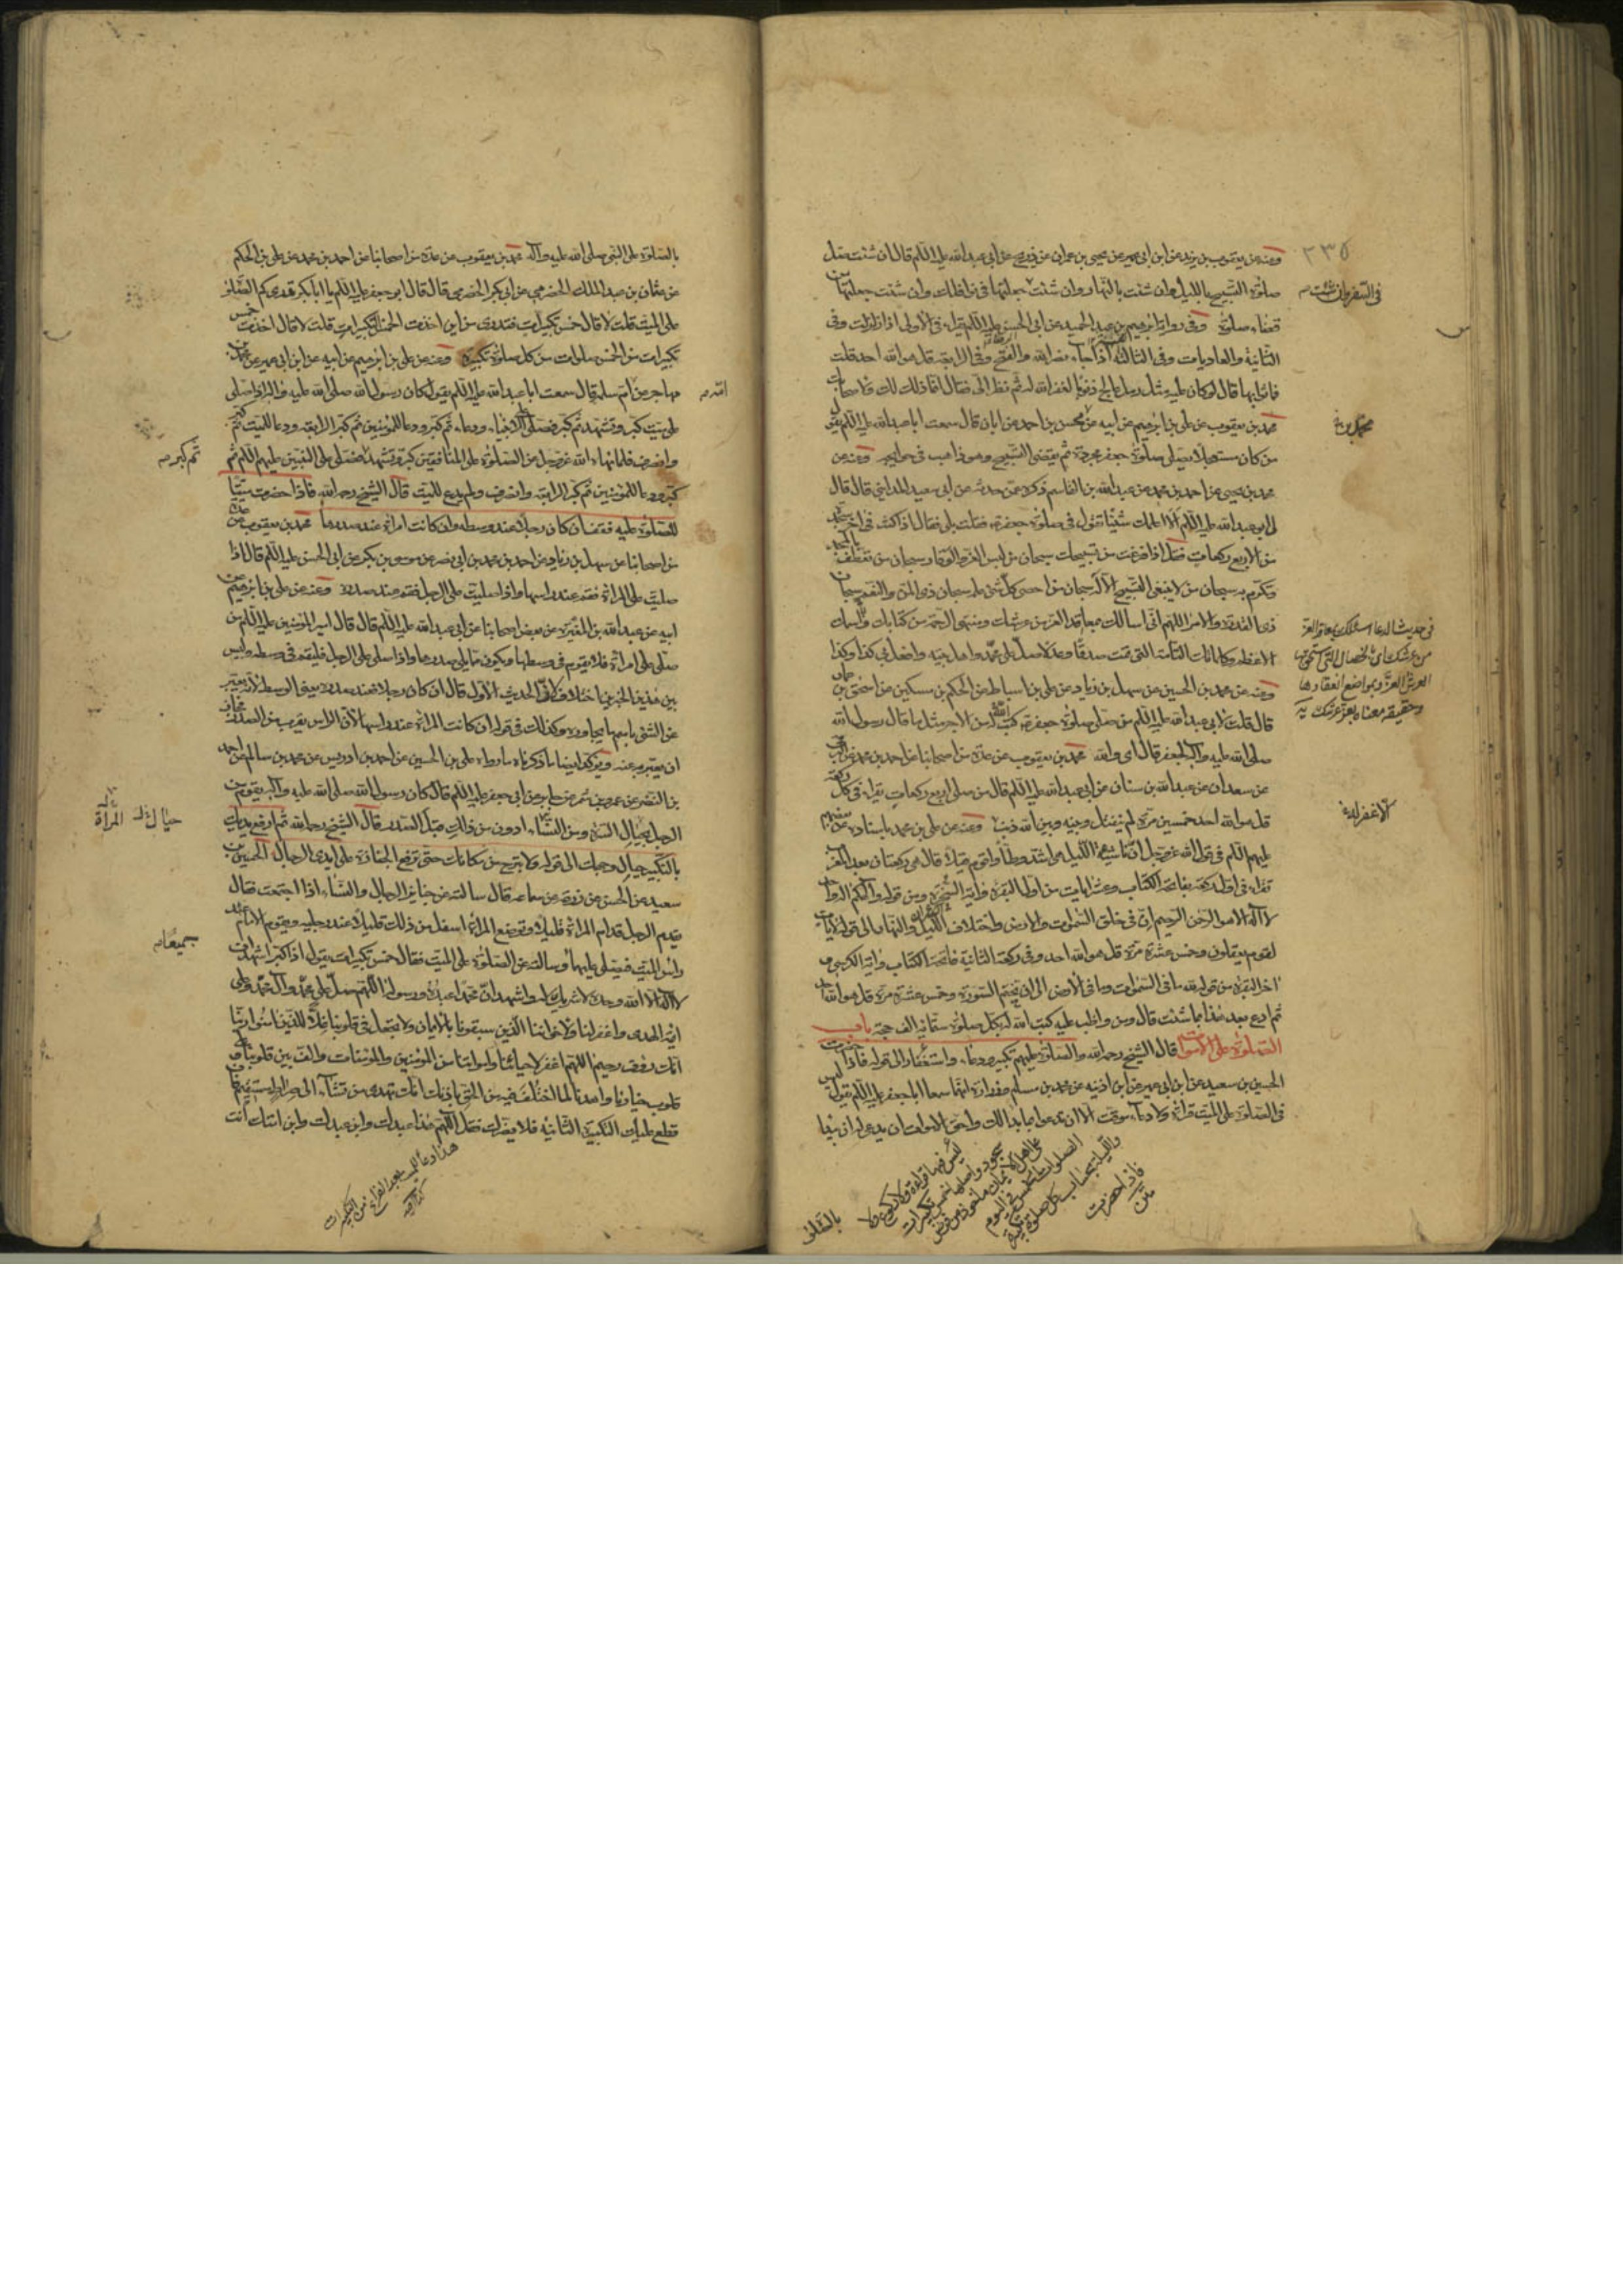 ٢٣٥
وعنه عن يعقوب بن يزيد عن ابن ابي عمير عن يحيى بن عمران عن ذريح عن ابي عبدالله عليه السلم قال ان شئت صل
صلوة التسبيح بالليل وان شئت بالنهار وان شئت في السفر وان شئت جعلتها في نوافلك وان شئت جعلتها من
قضاء صلوة وفي رواية ابرهيم بن عبد الحميد عن ابي الحسن عليه السلم يقراء في الاولى اذا زلزلت وفي
الثانية والعاديات وفي الثالثة اذا جاء نصر الله والفتح وفي الرابعة قل هو الله احد قلت
فما ثوابها قال لو كان عليه مثل رمل عالج ذنوبا لغفر الله له ثم نظر الي فقال انما ذلك لك ولاصحابك
محمد بن يعقوب عن علي بن ابرهيم عن ابيه عن محسن بن احمد عن ابان قال سمعت ابا عبدالله عليه السلم يقول
من كان مستعجلا يصلي صلوة جعفر مجردة ثم يقضي التسبيح وهو ذاهب في حوايجه وعنه عن
محمد بن يحيى عن احمد بن محمد عن عبدالله بن القاسم ذكره عمن حدثه عن ابي سعيد المدايني قال قال
لي ابو عبدالله عليه السلم الا اعلمك شيئا تقول في صلوة جعفر فقلت بلى فقال اذا كنت في اخر سجدة
من الاربع ركعات فقل اذا فرغت من تسبيحك سبحان من لبس العز والوقار سبحان من تعطف بالمجد
وتكرم به سبحان من لا ينبغي التسبيح الا له سبحان من احصى كل شئ علمه سبحان ذي المن والنعم سبحان
ذي القدرة والامر اللهم اني اسالك بمعاقد العز من عرشك ومنتهى الرحمة من كتابك واسمك
الاعظم وكلماتك التامة التي تمت صدقا وعدلا صل على محمد واهل بيته وافعل بي كذا وكذا
وعنه عن محمد بن الحسين عن سهل بن زياد عن علي بن اسباط عن الحكم بن مسكين عن اسحق بن عمار
قال قلت لابي عبدالله عليه السلم من صلى صلوة جعفر كتب الله له من الاجر مثل ما قال رسول الله
صلى الله عليه وآله لجعفر قال اي والله محمد بن يعقوب عن عدة من اصحابنا عن احمد بن محمد
عن سعدان عن عبدالله بن سنان عن ابي عبدالله عليه السلم قال من صلى اربع ركعات يقراء في كل ركعة
قل هو الله احد خمسين مرة لم ينفتل وبينه وبين الله ذنب وعنه عن علي بن محمد باسناده عن بعضهم
عليهم السلم في قول الله عز وجل ان ناشئة الليل هي اشد وطأ واقوم قيلا قال هي ركعتان بعد المغرب
تقراء في اول ركعة بفاتحة الكتاب وعشر ايات من اول البقرة واية السخرة ومن قوله والهكم اله واحد
لا اله الا هو الرحمن الرحيم ان في خلق السموات والارض واختلاف الليل والنهار الى قوله لايات
لقوم يعقلون وخمس عشرة مرة قل هو الله احد وفي ركعة الثانية فاتحة الكتاب واية الكرسي و
اخر البقرة من قوله لله ما في السموات وما في الارض الى ان تختم السورة وخمس عشرة مرة قل هو الله احد
ثم ادع بعد هذا بما شئت قال ومن واظب عليه كتب الله له بكل صلوة ستمائة الف حجة باب
الصلوة على الاموات قال الشيخ رحمه الله والصلوة عليهم تكبير ودعاء واستغفار الى قوله فاذا حضرت
الحسين بن سعيد عن ابن ابي عمير عن ابن اذينه عن محمد بن مسلم وزرارة انهما سمعا ابا جعفر عليه السلم يقول ليس
في الصلوة على الميت قراءة ولا دعاء موقت الا ان تدعو بما بدا لك واحق الاموات ان يدعى له ان تبدا
في حديث الدعاء اسئلك بمعاقد العز
من عرشك اي بالخصال التي استحق بها
العرش العز وبمواضع انعقادها
وحقيقة معناه بعز عرشك يه
الا غفر له
ليس فيها قراءة ولا ركوع ولا
سجود واصلها خمس تكبيرات
الصلوات الخمس في اليوم
والليلة بحساب كل صلوة تكبيرة
فاذا حضرت
متن
بالصلوة
بالصلوة على النبي صلى الله عليه وآله محمد بن يعقوب عن عدة من اصحابنا عن احمد بن محمد عن علي بن الحكم
عن عثمان بن عبد الملك الحضرمي عن ابي بكر الحضرمي قال قال ابو جعفر عليه السلم يا ابا بكر تدري كم الصلوة
على الميت قلت لا قال خمس تكبيرات فتدري من اين اخذت الخمس التكبيرات قلت لا قال اخذت خمس
تكبيرات من الخمس صلوات من كل صلوة تكبيرة وعنه عن علي بن ابرهيم عن ابيه عن ابن ابي عمير عن محمد بن
مهاجر عن امه ام سلمة قال سمعت ابا عبدالله عليه السلم يقول كان رسول الله صلى الله عليه وآله اذا صلى
على ميت كبر وتشهد ثم كبر فصلى على الانبياء ودعا ثم كبر ودعا للمؤمنين ثم كبر الرابعة ودعا للميت ثم كبر
وانصرف فلما نهاه الله عز وجل عن الصلوة على المنافقين كبر وتشهد ثم كبر فصلى على النبيين عليهم السلم ثم
كبر ودعا للمؤمنين ثم كبر الرابعة وانصرف ولم يدع للميت قال الشيخ رحمه الله فاذا حضرت ميتا
للصلوة عليه فقف ان كان رجلا عند وسطه وان كانت امراة عند صدرها محمد بن يعقوب عن عدة
من اصحابنا عن سهل بن زياد عن احمد بن محمد بن ابي نصر عن موسى بن بكر عن ابي الحسن عليه السلم قال اذا
صليت على المراة فقم عند راسها واذا صليت على الرجل فقم عند صدره وعنه عن علي بن ابرهيم عن
ابيه عن عبدالله بن المغيرة عن بعض اصحابنا عن ابي عبدالله عليه السلم قال قال امير المؤمنين عليه السلم من
صلى على امراة فلا يقوم في وسطها ويكون مما يلي صدرها واذا صلى على الرجل فليقم في وسطه وليس
بين هذين الخبرين اختلاف لان الحديث الاول قال ان كان رجلا فعند صدره يعني الوسط لانه يعبر
عن الشئ باسم ما يجاوره وكذلك في قوله ان كانت المراة عند راسها لان الراس يقرب من الصدر فجاز
ان يعبر به عنه ويؤكد ايضا ما ذكرناه ما رواه علي بن الحسين عن احمد بن ادريس عن محمد بن سالم عن احمد
بن النضر عن عمرو بن شمر عن جابر عن ابي جعفر عليه السلم قال كان رسول الله صلى الله عليه وآله يقوم من
الرجل بحيال السرة ومن النساء ادون من ذلك قبل الصدر قال الشيخ رحمه الله ثم ارفع يديك
بالتكبير حيال وجهك الى قوله ولا تبرح من مكانك حتى ترفع الجنازة على ايدي الرجال الحسين بن
سعيد عن الحسن عن زرعة عن سماعة قال سالته عن جنايز الرجال والنساء اذا اجتمعت فقال
يقدم الرجل قدام المراة قليلا وتوضع المراة اسفل من ذلك قليلا عند رجليه ويقوم الامام عند
راس الميت فيصلي عليهما جميعا وسالته عن الصلوة على الميت فقال خمس تكبيرات يقول اذا كبر اشهد ان
لا اله الا الله وحده لا شريك له واشهد ان محمدا عبده ورسوله اللهم صل على محمد وآل محمد وعلى
ائمة الهدى واغفر لنا ولاخواننا الذين سبقونا بالايمان ولا تجعل في قلوبنا غلا للذين امنوا ربنا
انك رؤف رحيم اللهم اغفر لاحيائنا وامواتنا من المؤمنين والمؤمنات والف بين قلوبنا على
قلوب خيارنا واهدنا لما اختلف فيه من الحق باذنك انك تهدي من تشاء الى صراط مستقيم فان
قطع عليك التكبيرة الثانية فلا يضرك فقل اللهم هذا عبدك وابن عبدك وابن امتك انت
حيال
المرأة
هذا دعاء للميت بعد الفراغ من التكبيرات